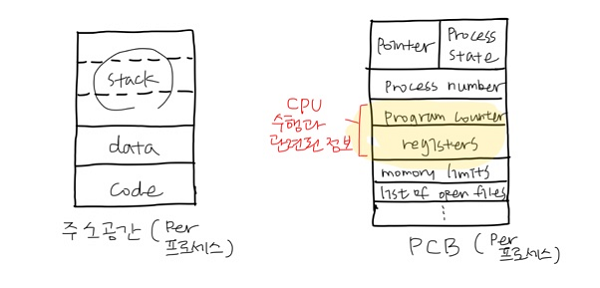 stack
data
code
주소공간 (per
프로세스)
CPU
수행과
관련된 정보
Pointer
Process
State
Process number
Program counter
registers
momory limits
list of open files
⋮
PCB (per
프로세스)